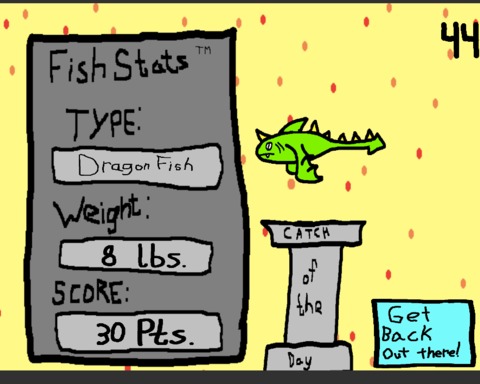 FishStats™
TYPE:
Dragon Fish
Weight:
8 lbs.
SCORE:
30 Pts.
44
CATCH
of
the
Day
Get
Back
Out there!